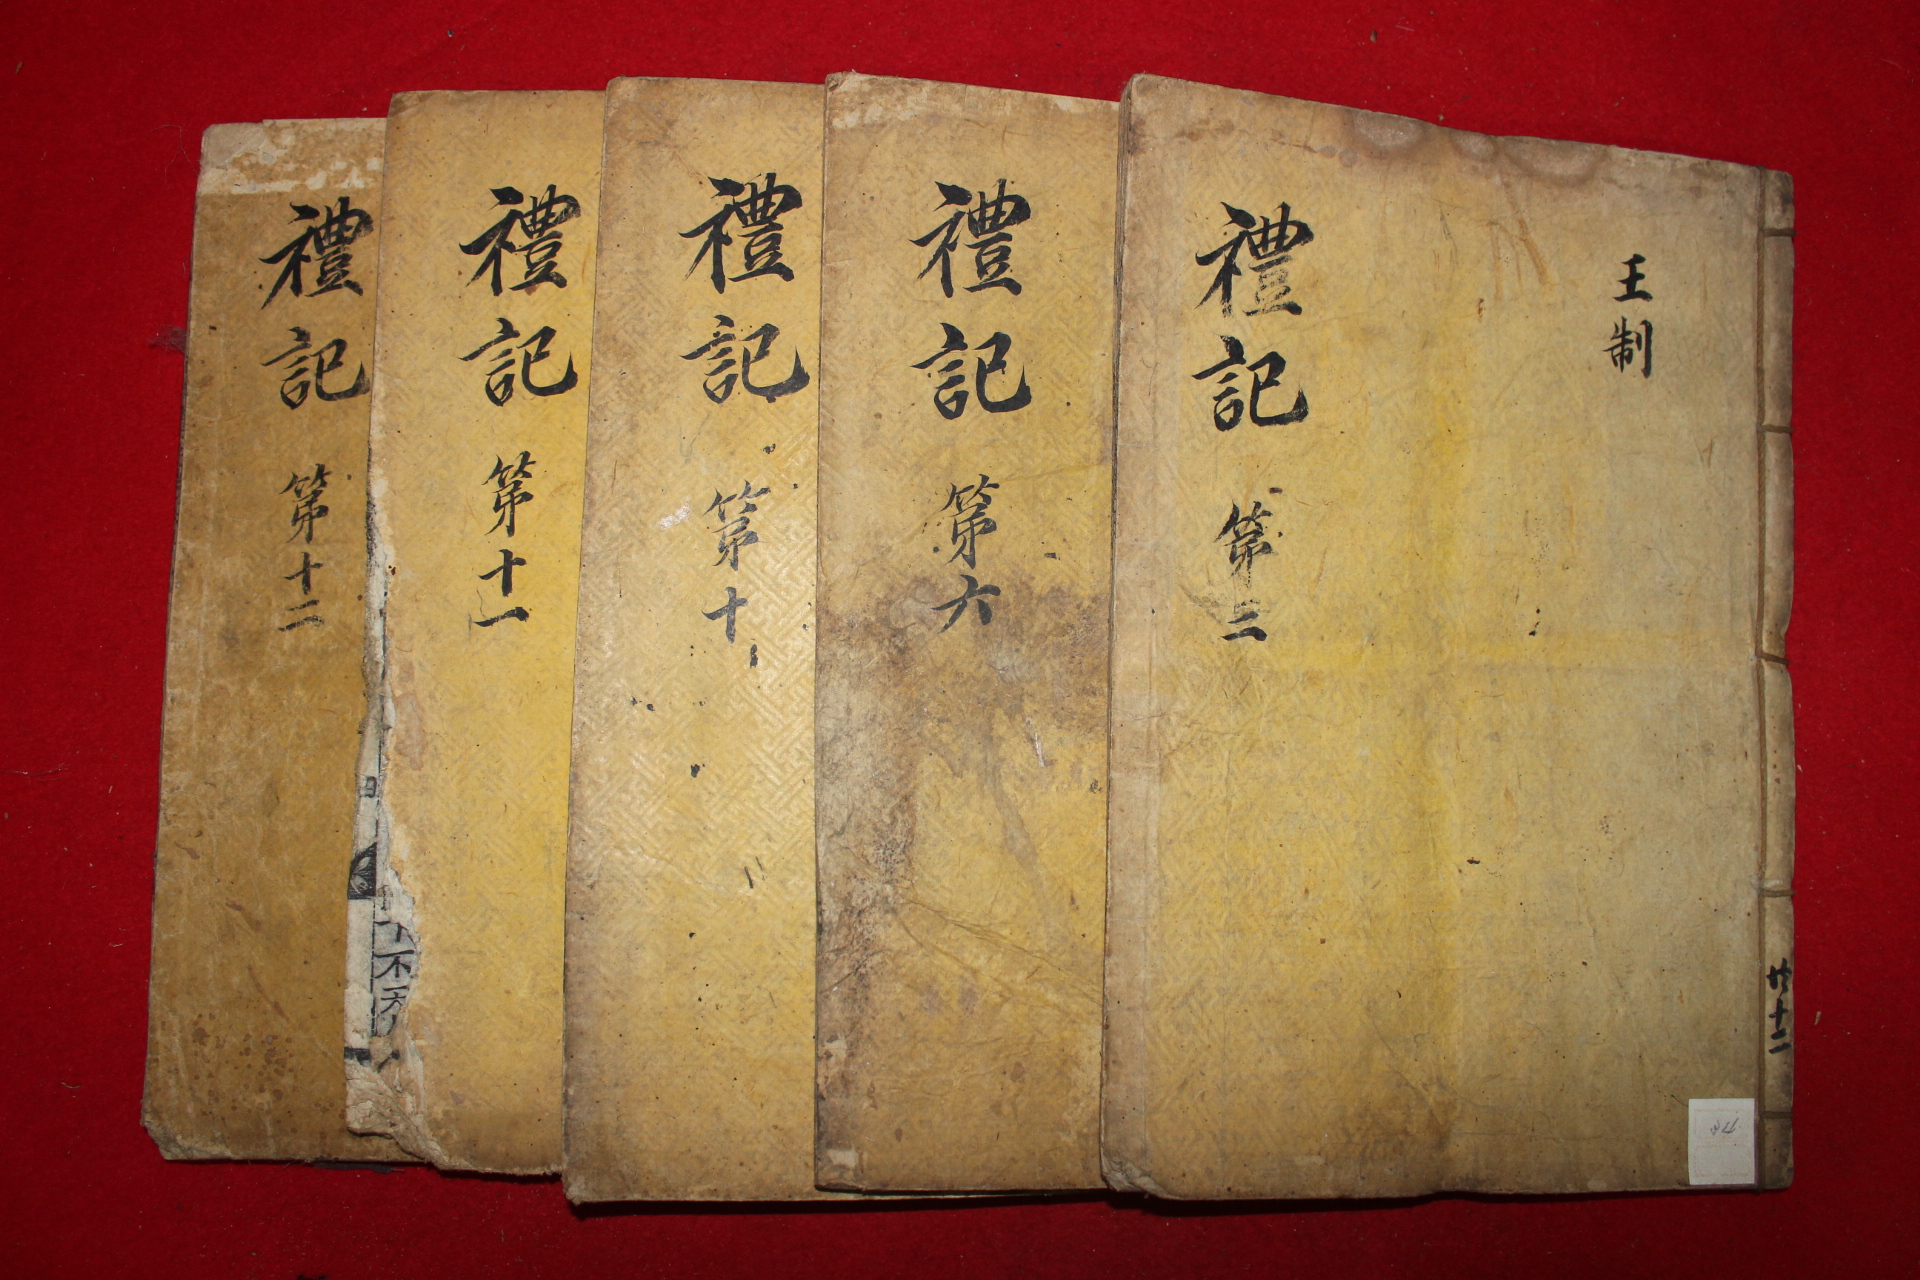 王制
禮記 第三
禮記 第六
禮記 第十
禮記 第十一
禮記 第十二
共十二